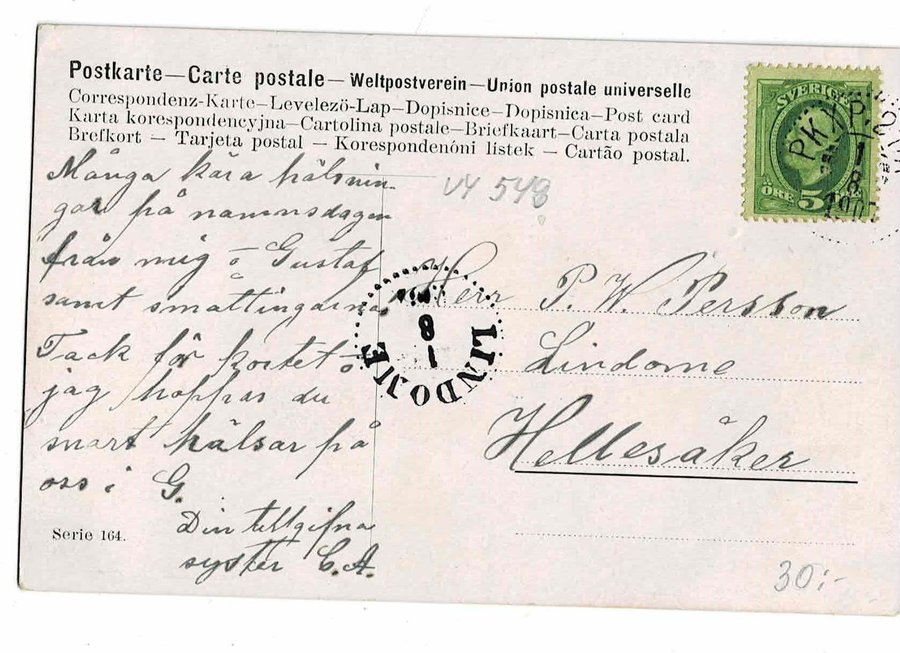 Postkarte—Carte postale—Weltpostverein—Union postale universelle
Correspondenz-Karte—Levelezö-Lap—Dopisnice—Dopisnica—Post card
Karta korespondencyjna—Cartolina postale—Briefkaart—Carta postala
Brefkort — Tarjeta postal — Korespondenóni listek — Cartão postal.
SVERIGE
ÖRE 5
PKXP
1
8
Vy 548
Många kära hälsnin-
gar på namnsdagen
från mig o Gustaf
samt småttingarna.
Tack för kortet o
jag hoppas du
snart hälsar på
oss i G.
Din tillgifna
syster C.A.
LINDOME
8
1
Herr P. W. Persson
Lindome
Hellesåker
Serie 164.
30:-